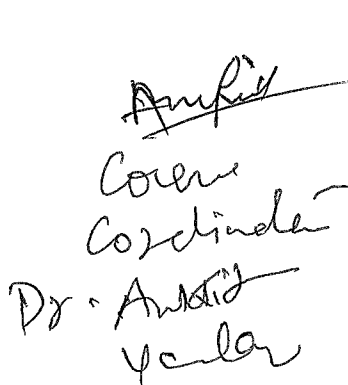 Ankit
Course
Coordinator
Dr. Ankit
Yadav